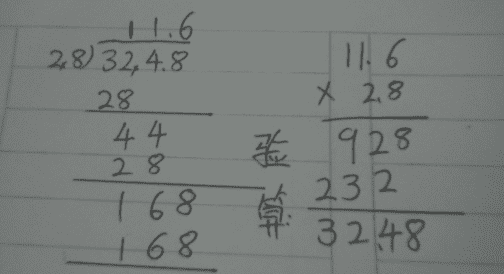 11.6
2,8)32,4.8
28
44
28
168
168
验
算:
11.6
× 2.8
928
232
32.48